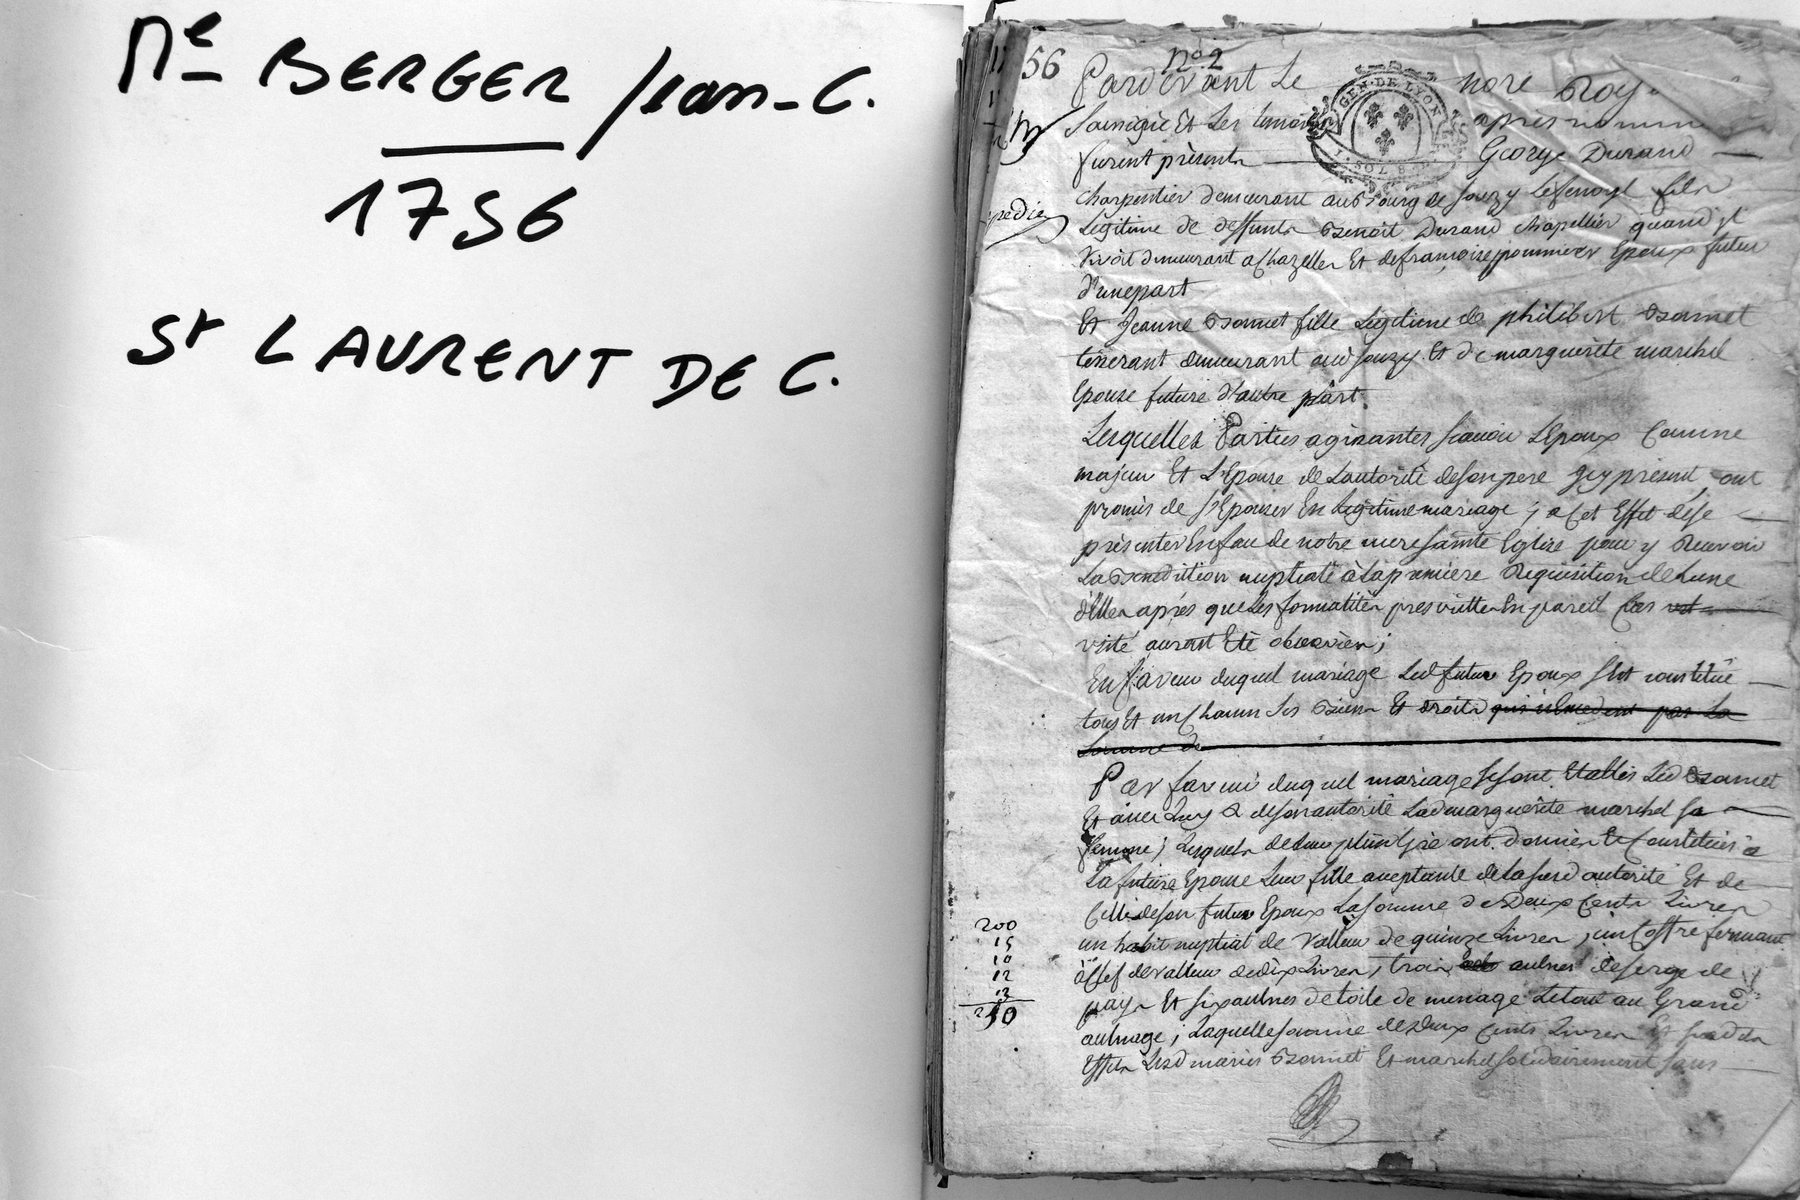 Me BERGER Jean-C.
1756
St LAURENT DE C.
56 no. 2
Pardevant Le nore Roy
Soussigné Et Les temoins après nomm
furent présents George Durand
GEN. DE LYON
1. SOL 8. D.
charpentier demeurant au Bourg de Souzy Lesfenoyl fils
Légitime de deffunts Benoit Durand chapellier quand jl
vivoit demeurant a Chazelles Et de françoise pommier Epoux futur
d'une part
Et Jeanne Bonnet fille Légitime de philibert Bonnet
tisserant demeurant aud Souzy Et de marguerite marchel
Epouse future d'autre part.
Lesquelles Parties agissantes scavoir L'Epoux Comme
majeur Et L'Epouse de L'autorité de son pere jcy présent, ont
promis de s'Epouser En Légitime mariage; a Cet Effet de se
présenter En face de notre mere sainte Eglise pour y Recevoir
La Benediction nuptiale à la premiere Requisition de L'une
d'Elles après que Les formalités prescrittes En pareil Cas
usité auront Eté observées;
En faveur duquel mariage Led futur Epoux s'est constitué
tous Et un Chacun ses Biens Et droits
somme de
Par faveur duquel mariage se sont Etablis Led Bonnet
Et avec Luy & de son autorité Lad marguerite marchel sa
femme; Lesquels de Leur plein Gré ont donnés Et Constitués à
La future Epouse Leur fille acceptante de La susd autorité Et de
Celle de son futur Epoux La somme de Deux Cents Livres
un habit nuptial de valleur de quinze Livres, un Coffre fermant
à Clef de valleur de dix Livres, trois aulnes de serge de
pays Et six aulnes de toile de menage Le tout au Grand
aulnage; Laquelle somme de Deux Cents Livres Et susdits
Effets Lesd mariés Bonnet Et marchel solidairement sans
200
15
10
12
13
250